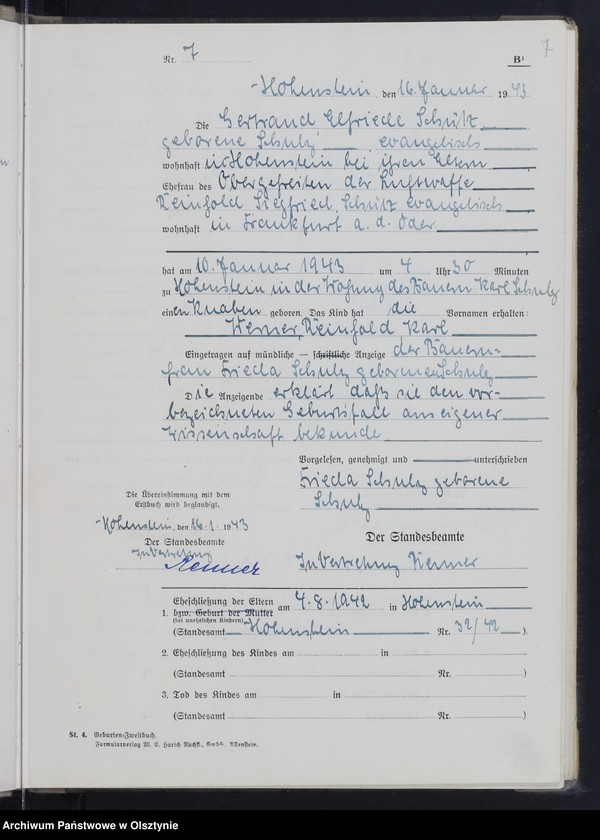 7
Nr. 7 B¹
Hohenstein, den 16. Januar 1943
Die Gertraud Elfriede Schütz
geborene Schulz, evangelisch
wohnhaft in Hohenstein bei ihren Eltern
Ehefrau des Obergefreiten der Luftwaffe
Reinhold Siegfried Schütz evangelisch
wohnhaft in Frankfurt a. d. Oder
hat am 10. Januar 1943 um 4 Uhr 30 Minuten
zu Hohenstein in der Wohnung des Bauern Karl Schulz
einen Knaben geboren. Das Kind hat die Vornamen erhalten:
Werner, Reinhold Karl
Eingetragen auf mündliche — schriftliche Anzeige der Bauern-
frau Frieda Schulz geborenen Schulz
Die Anzeigende erklärt daß sie den vor-
bezeichneten Geburtsfall aus eigener
Wissenschaft bekunde
Vorgelesen, genehmigt und unterschrieben
Frieda Schulz geborene
Schulz
Die Übereinstimmung mit dem
Erstbuch wird beglaubigt.
Hohenstein, den 16.1.1943
Der Standesbeamte
In Vertretung
Der Standesbeamte
In Vertretung
Eheschließung der Eltern
1. bzw. Geburt der Mutter am 4.8.1942 in Hohenstein
(bei unehelichen Kindern)
(Standesamt Hohenstein Nr. 32/42).
2. Eheschließung des Kindes am in
(Standesamt Nr. )
3. Tod des Kindes am in
(Standesamt Nr. )
St. 4. Geburten-Zweitbuch.
Formularverlag W. E. Harich Nachfl., GmbH. Allenstein.
Archiwum Państwowe w Olsztynie